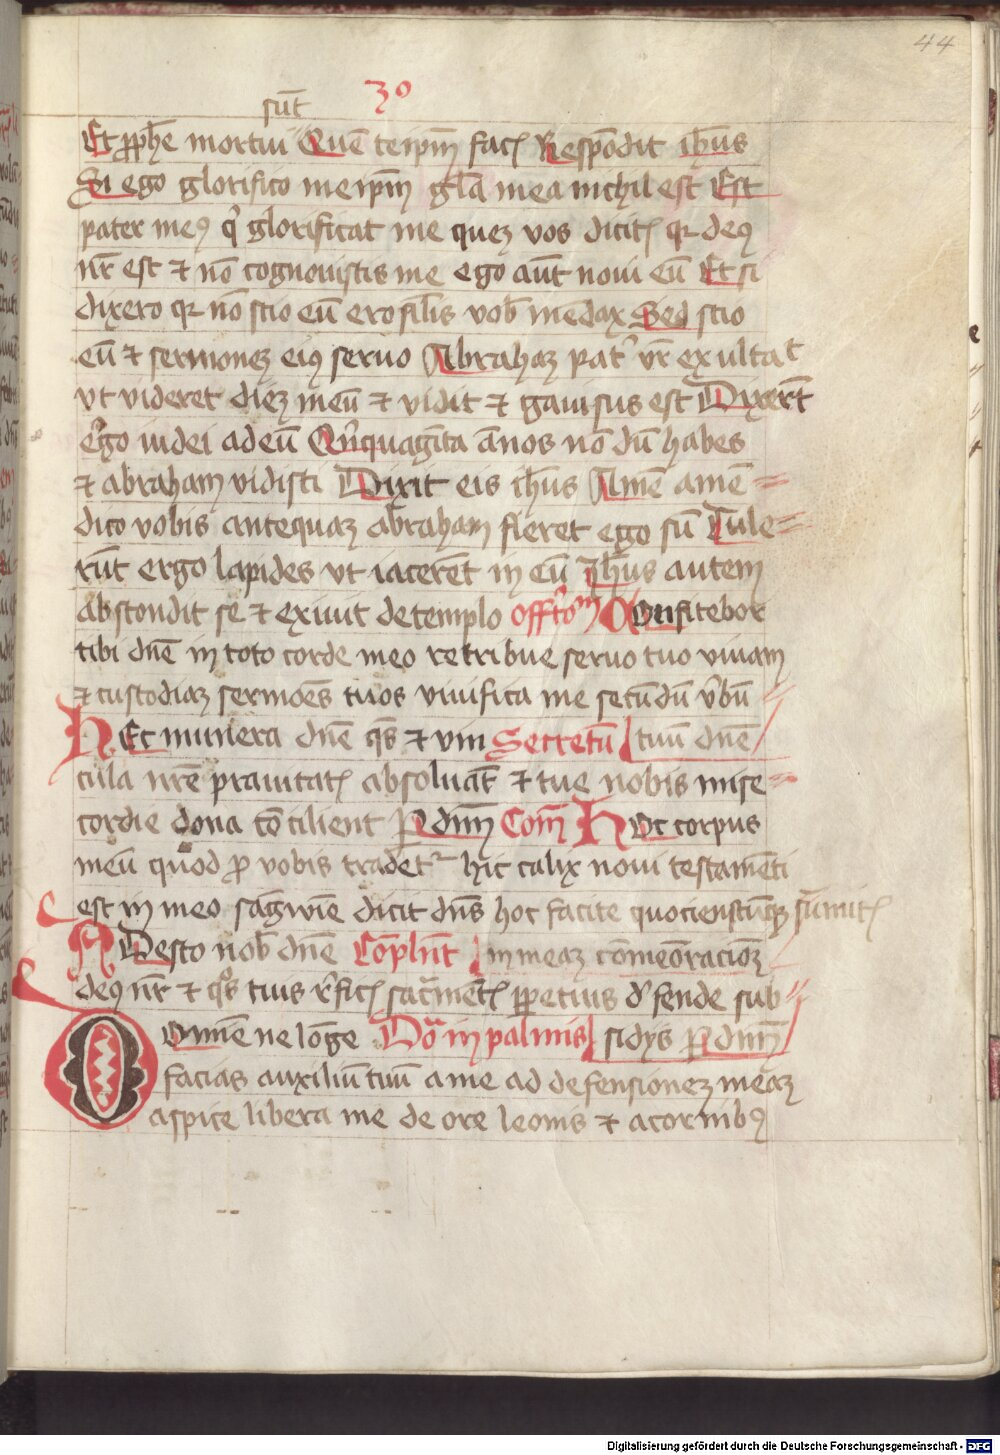 44
30
sūt
Et ꝓphē mortui Quē teipm̄ facꝭ Respōdit ih̄us
Si ego glorifico meipm̄ gl̄a mea nichil est Est
pater meꝰ qͥ glorificat me queʒ vos dicitꝭ qꝛ deꝰ
nr̄ est ⁊ nō cognouistis me ego aūt noui eū Et si
dixero qꝛ nō scio eū ero sil̄is vob̄ mēdax Sed scio
eū ⁊ sermoneʒ eiꝰ seruo Abrahaʒ patͬ vr̄ exultat
vt videret dieʒ meū ⁊ vidit ⁊ gauisus est Dixer̄t
ergo iudei ad eū Qn̄quagīta ānos nō dū habes
⁊ abraham vidisti Dixit eis ih̄us Amē amē
dico vobis antequaʒ abraham fieret ego sū Tule
rūt ergo lapides vt iacerēt in eū Ih̄us autem
abscondit se ⁊ exiuit de templo offr̄oͫ Confitebor
tibi dn̄e in toto corde meo retribue seruo tuo viuam
⁊ custodiaʒ sermōes tuos viuifica me secūdū v̄bū
Hec munera dn̄e qs̄ ⁊ vin Secretū tuū dn̄e
cula nr̄e prauitatꝭ absoluāt ⁊ tue nobis mise
cordie dona cōcilient P dnm̄ Com̄ Hoc corpus
meū quod ꝓ vobis tradetᷣ hic calix noui testamēti
est in meo sāgwīe dicit dn̄s hoc facite quociensc̄unqꝫ sūmitꝭ
Adesto nob̄ dn̄e Cōpln̄t in meaʒ cōmēoracioʒ
deꝰ nr̄ ⁊ qͦs tuis r̄ficꝭ sac̄mētꝭ ꝑpetuis d̄fende sub
O Domine ne lōge Dōa in palmis sidijs P dnm̄
facias auxiliū tuū a me ad defensioneʒ meaʒ
aspice libera me de ore leonis ⁊ a cornibꝰ
Digitalisierung gefördert durch die Deutsche Forschungsgemeinschaft - DFG